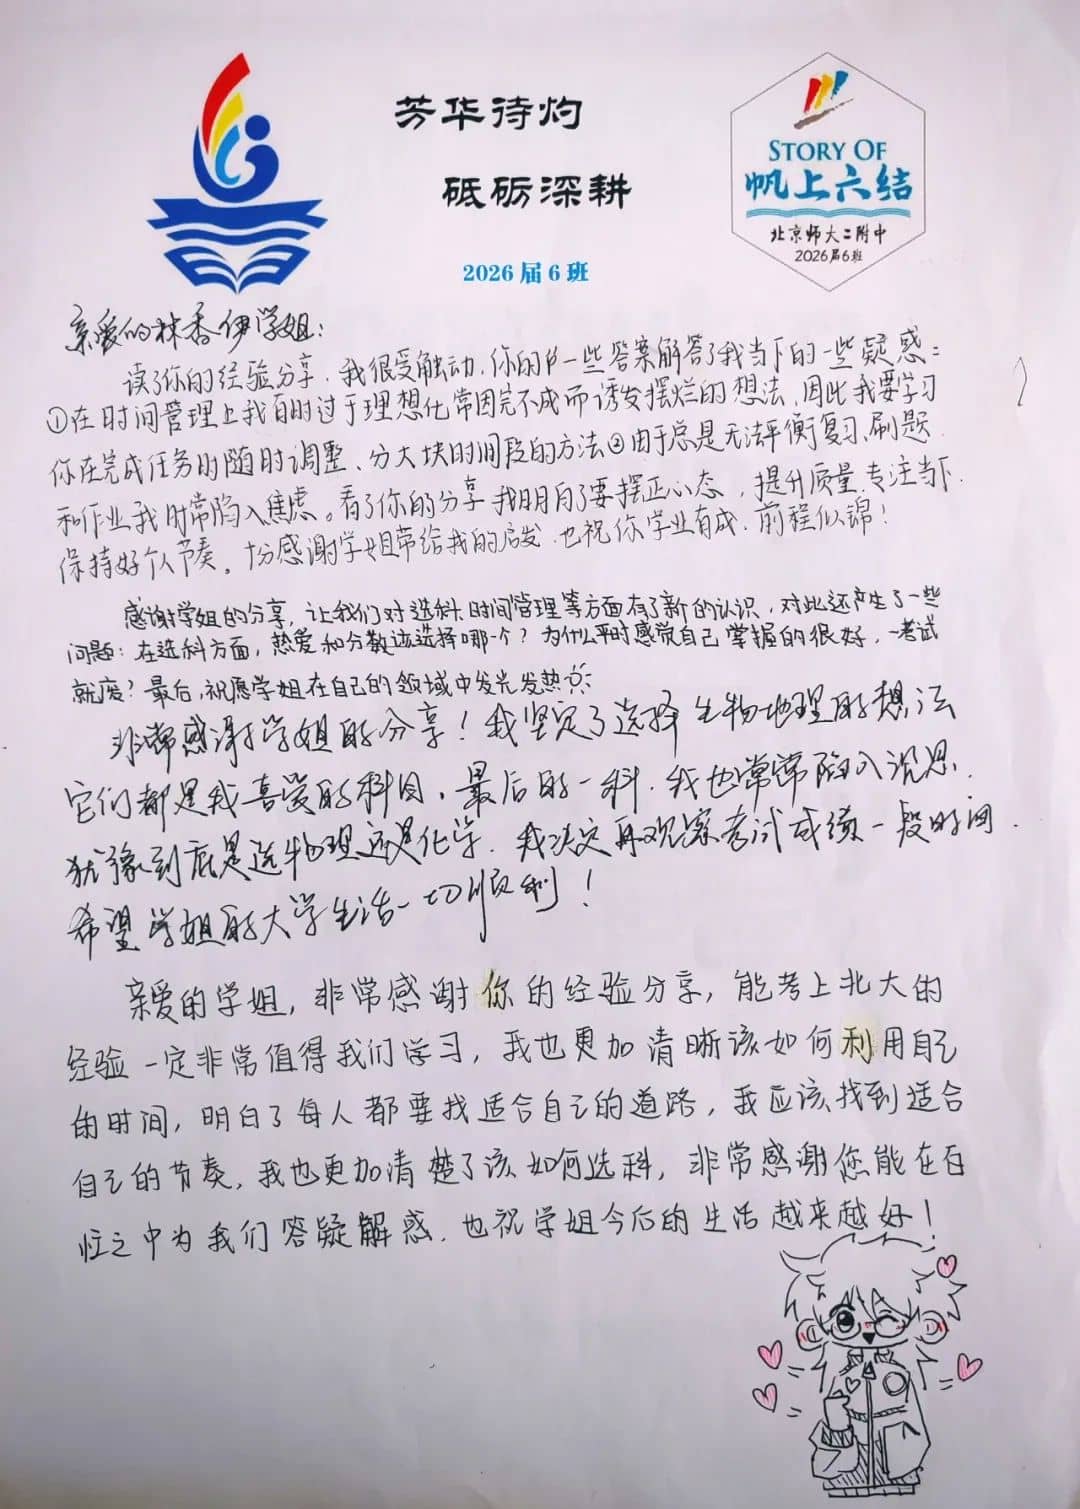 芳华待灼
砥砺深耕
2026届6班
STORY OF
帆上六结
北京师大二附中
2026届6班
亲爱的林香伊学姐：
读了你的经验分享，我很受触动，你的一些答案解答了我当下的一些疑惑：
①在时间管理上我有时过于理想化常因完不成而诱发摆烂的想法，因此我要学习
你在完成任务时随时调整、分大块时间段的方法②由于总是无法平衡复习、刷题
和作业我时常陷入焦虑。看了你的分享我明白了要摆正心态，提升质量，专注当下，
保持好个人节奏。十分感谢学姐带给我的启发，也祝你学业有成，前程似锦！
感谢学姐的分享，让我们对选科、时间管理等方面有了新的认识，对此还产生了一些
问题：在选科方面，热爱和分数该选择哪一个？为什么平时感觉自己掌握的很好，一考试
就废？最后，祝愿学姐在自己的领域中发光发热
非常感谢学姐的分享！我坚定了选择生物地理的想法
它们都是我喜爱的科目，最后的一科，我也常常陷入沉思，
犹豫到底是选物理还是化学，我决定再观察考试成绩一段时间．
希望学姐的大学生活一切顺利！
亲爱的学姐，非常感谢你的经验分享，能考上北大的
经验一定非常值得我们学习，我也更加清晰该如何利用自己
的时间，明白了每人都要找适合自己的道路，我应该找到适合
自己的节奏，我也更加清楚了该如何选科，非常感谢您能在百
忙之中为我们答疑解惑，也祝学姐今后的生活越来越好！